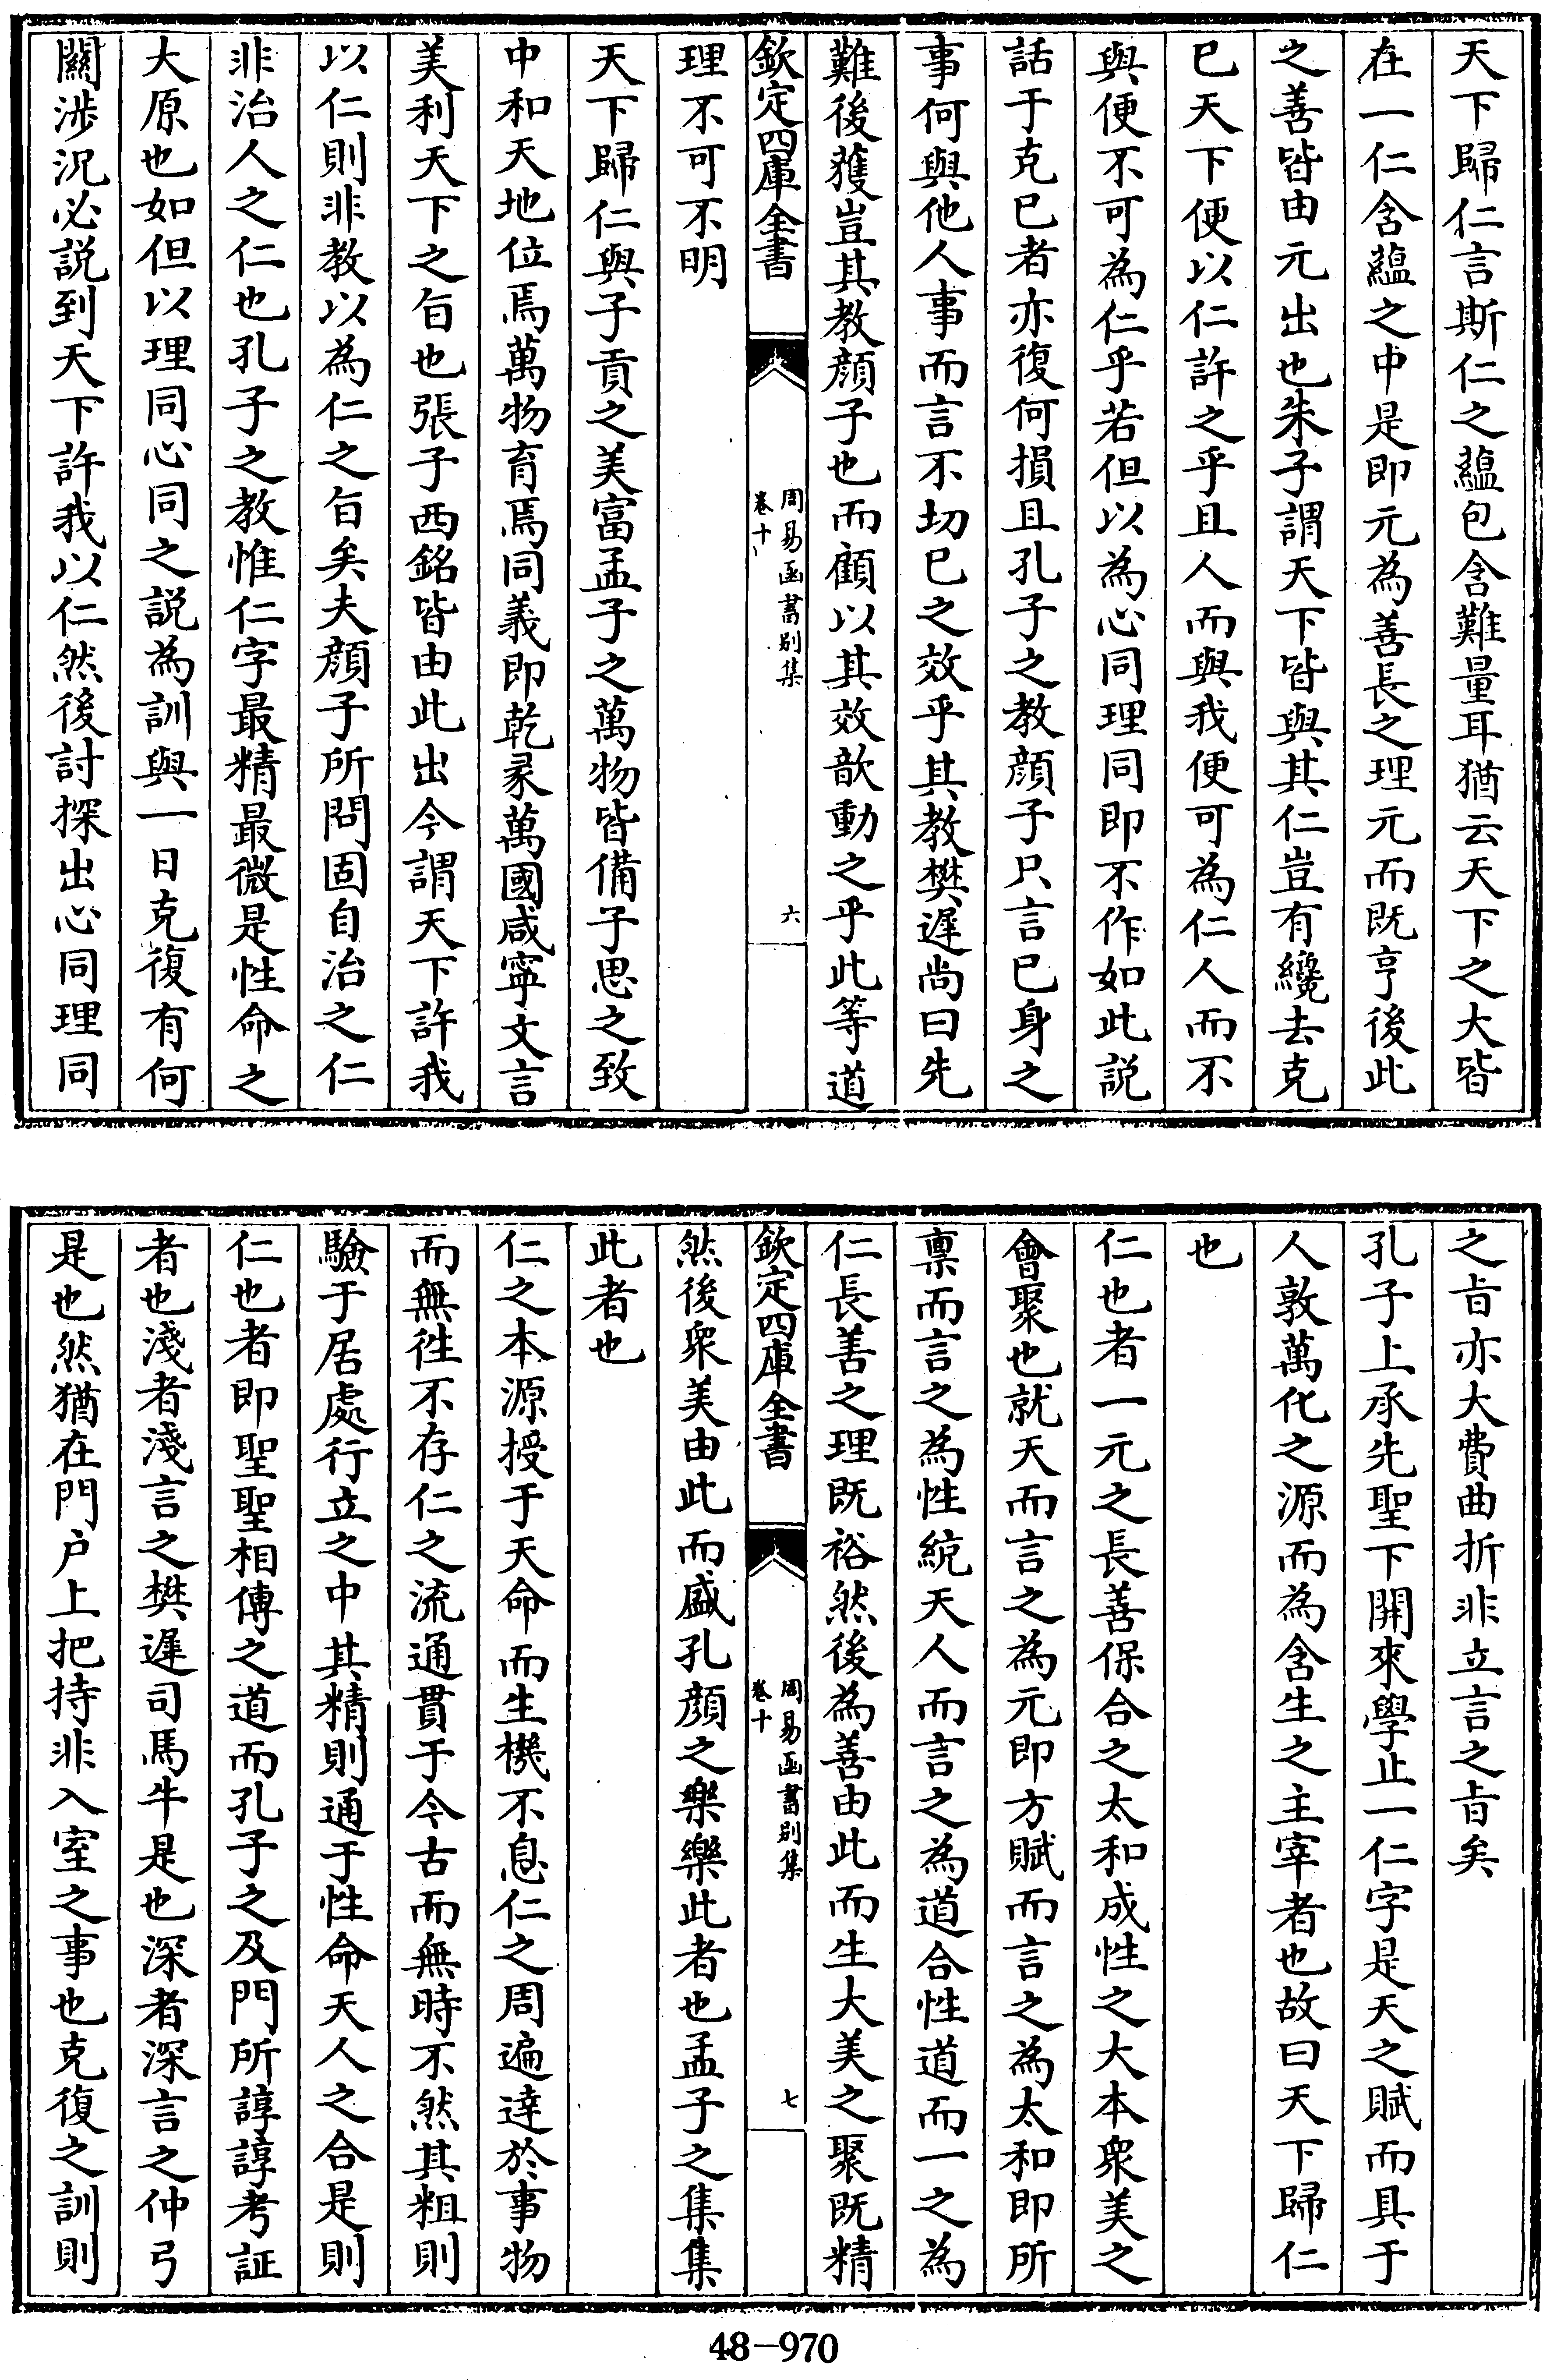 天下歸仁言斯仁之蘊包含難量耳猶云天下之大皆
在一仁含蘊之中是即元為善長之理元而既亨後此
之善皆由元出也朱子謂天下皆與其仁豈有纔去克
已天下便以仁許之乎且人而與我便可為仁人而不
與便不可為仁乎若但以為心同理同即不作如此說
話于克已者亦復何損且孔子之教顔子只言已身之
事何與他人事而言不切已之效乎其教樊遲尚曰先
難後獲豈其教顔子也而顧以其效歆動之乎此等道
欽定四庫全書
周易函書別集
卷十
六
理不可不明
天下歸仁與子貢之美富孟子之萬物皆備子思之致
中和天地位焉萬物育焉同義即乾彖萬國咸寧文言
美利天下之㫖也張子西銘皆由此出今謂天下許我
以仁則非教以為仁之㫖矣夫顔子所問固自治之仁
非治人之仁也孔子之教惟仁字最精最微是性命之
大原也如但以理同心同之說為訓與一日克復有何
關涉況必説到天下許我以仁然後討探出心同理同
之㫖亦大費曲折非立言之㫖矣
孔子上承先聖下開來學止一仁字是天之賦而具于
人敦萬化之源而為含生之主宰者也故曰天下歸仁
也
仁也者一元之長善保合之太和成性之大本衆美之
會聚也就天而言之為元即方賦而言之為太和即所
禀而言之為性統天人而言之為道合性道而一之為
仁長善之理既裕然後為善由此而生大美之聚既精
欽定四庫全書
周易函書別集
卷十
七
然後衆美由此而盛孔顔之樂樂此者也孟子之集集
此者也
仁之本源授于天命而生機不息仁之周遍逹於事物
而無徃不存仁之流通貫于今古而無時不然其粗則
驗于居處行立之中其精則通于性命天人之合是則
仁也者即聖聖相傳之道而孔子之及門所諄諄考証
者也淺者淺言之樊遲司馬牛是也深者深言之仲弓
是也然猶在門户上把持非入室之事也克復之訓則
48-970